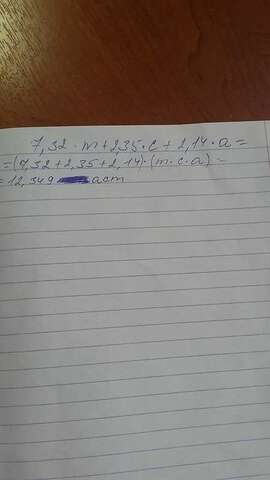 7,32 · m + 2,35 · c + 2,14 · a =
= (7,32 + 2,35 + 2,14) · (m · c · a) =
= 12,349 acm